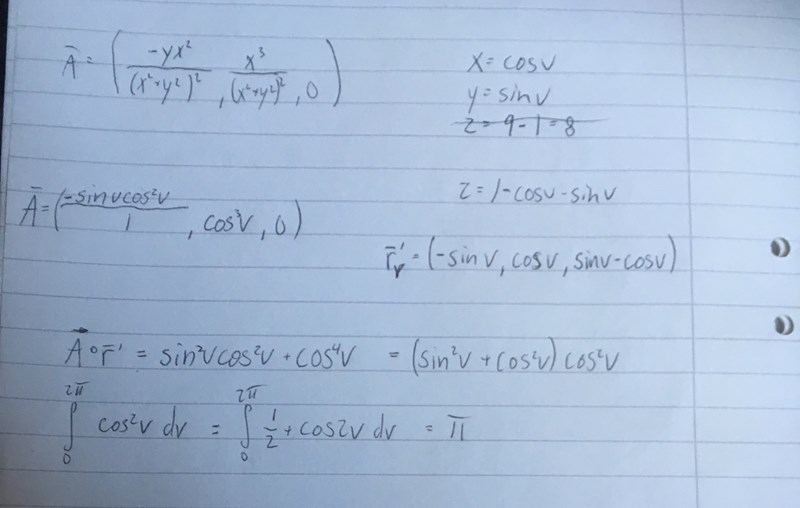 Ā = (-yx²/(x²+y²)², x³/(x²+y²)², 0)
x = cosv
y = sinv
z = 9-1=8
z = 1-cosv-sinv
Ā = (-sinvcos²v/1, cos³v, 0)
r̄'ᵥ = (-sinv, cosv, sinv-cosv)
Ā∘r̄' = sin²vcos²v + cos⁴v = (sin²v + cos²v) cos²v
∫₀^2π cos²v dv = ∫₀^2π 1/2 + cos2v dv = π